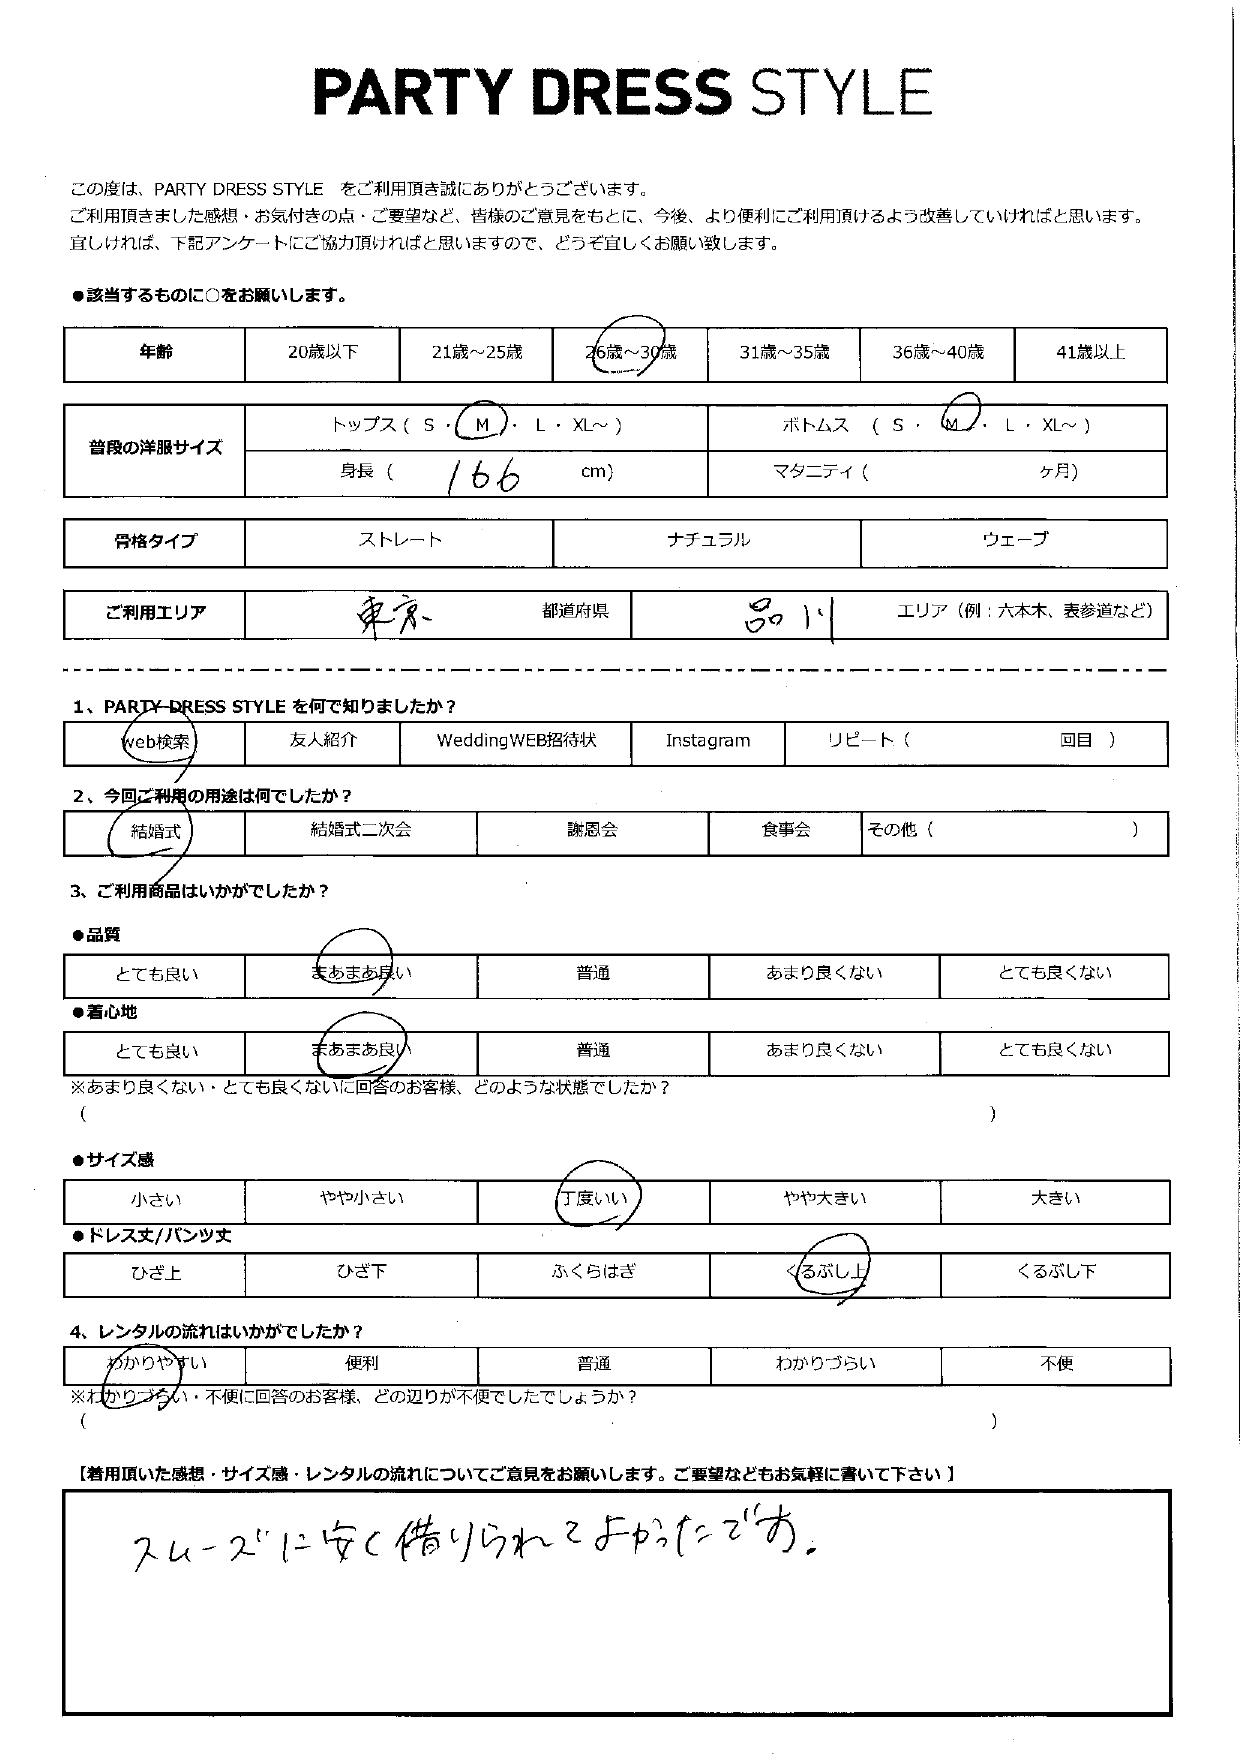 PARTY DRESS STYLE
この度は、PARTY DRESS STYLE をご利用頂き誠にありがとうございます。
ご利用頂きました感想・お気付きの点・ご要望など、皆様のご意見をもとに、今後、より便利にご利用頂けるよう改善していければと思います。
宜しければ、下記アンケートにご協力頂ければと思いますので、どうぞ宜しくお願い致します。
●該当するものに○をお願いします。
年齢 20歳以下 21歳～25歳 26歳～30歳 31歳～35歳 36歳～40歳 41歳以上
普段の洋服サイズ
トップス ( S ・ M ・ L ・ XL～ ) ボトムス ( S ・ M ・ L ・ XL～ )
身長 ( 166 cm) マタニティ ( ヶ月)
骨格タイプ ストレート ナチュラル ウェーブ
ご利用エリア 東京 都道府県 品川 エリア（例：六本木、表参道など）
1、PARTY DRESS STYLE を何で知りましたか？
web検索 友人紹介 WeddingWEB招待状 Instagram リピート ( 回目 )
2、今回ご利用の用途は何でしたか？
結婚式 結婚式二次会 謝恩会 食事会 その他 ( )
3、ご利用商品はいかがでしたか？
●品質
とても良い まあまあ良い 普通 あまり良くない とても良くない
●着心地
とても良い まあまあ良い 普通 あまり良くない とても良くない
※あまり良くない・とても良くないに回答のお客様、どのような状態でしたか？
( )
●サイズ感
小さい やや小さい 丁度いい やや大きい 大きい
●ドレス丈/パンツ丈
ひざ上 ひざ下 ふくらはぎ くるぶし上 くるぶし下
4、レンタルの流れはいかがでしたか？
わかりやすい 便利 普通 わかりづらい 不便
※わかりづらい・不便に回答のお客様、どの辺りが不便でしたでしょうか？
( )
【着用頂いた感想・サイズ感・レンタルの流れについてご意見をお願いします。ご要望などもお気軽に書いて下さい 】
スムーズに安く借りられてよかったです。